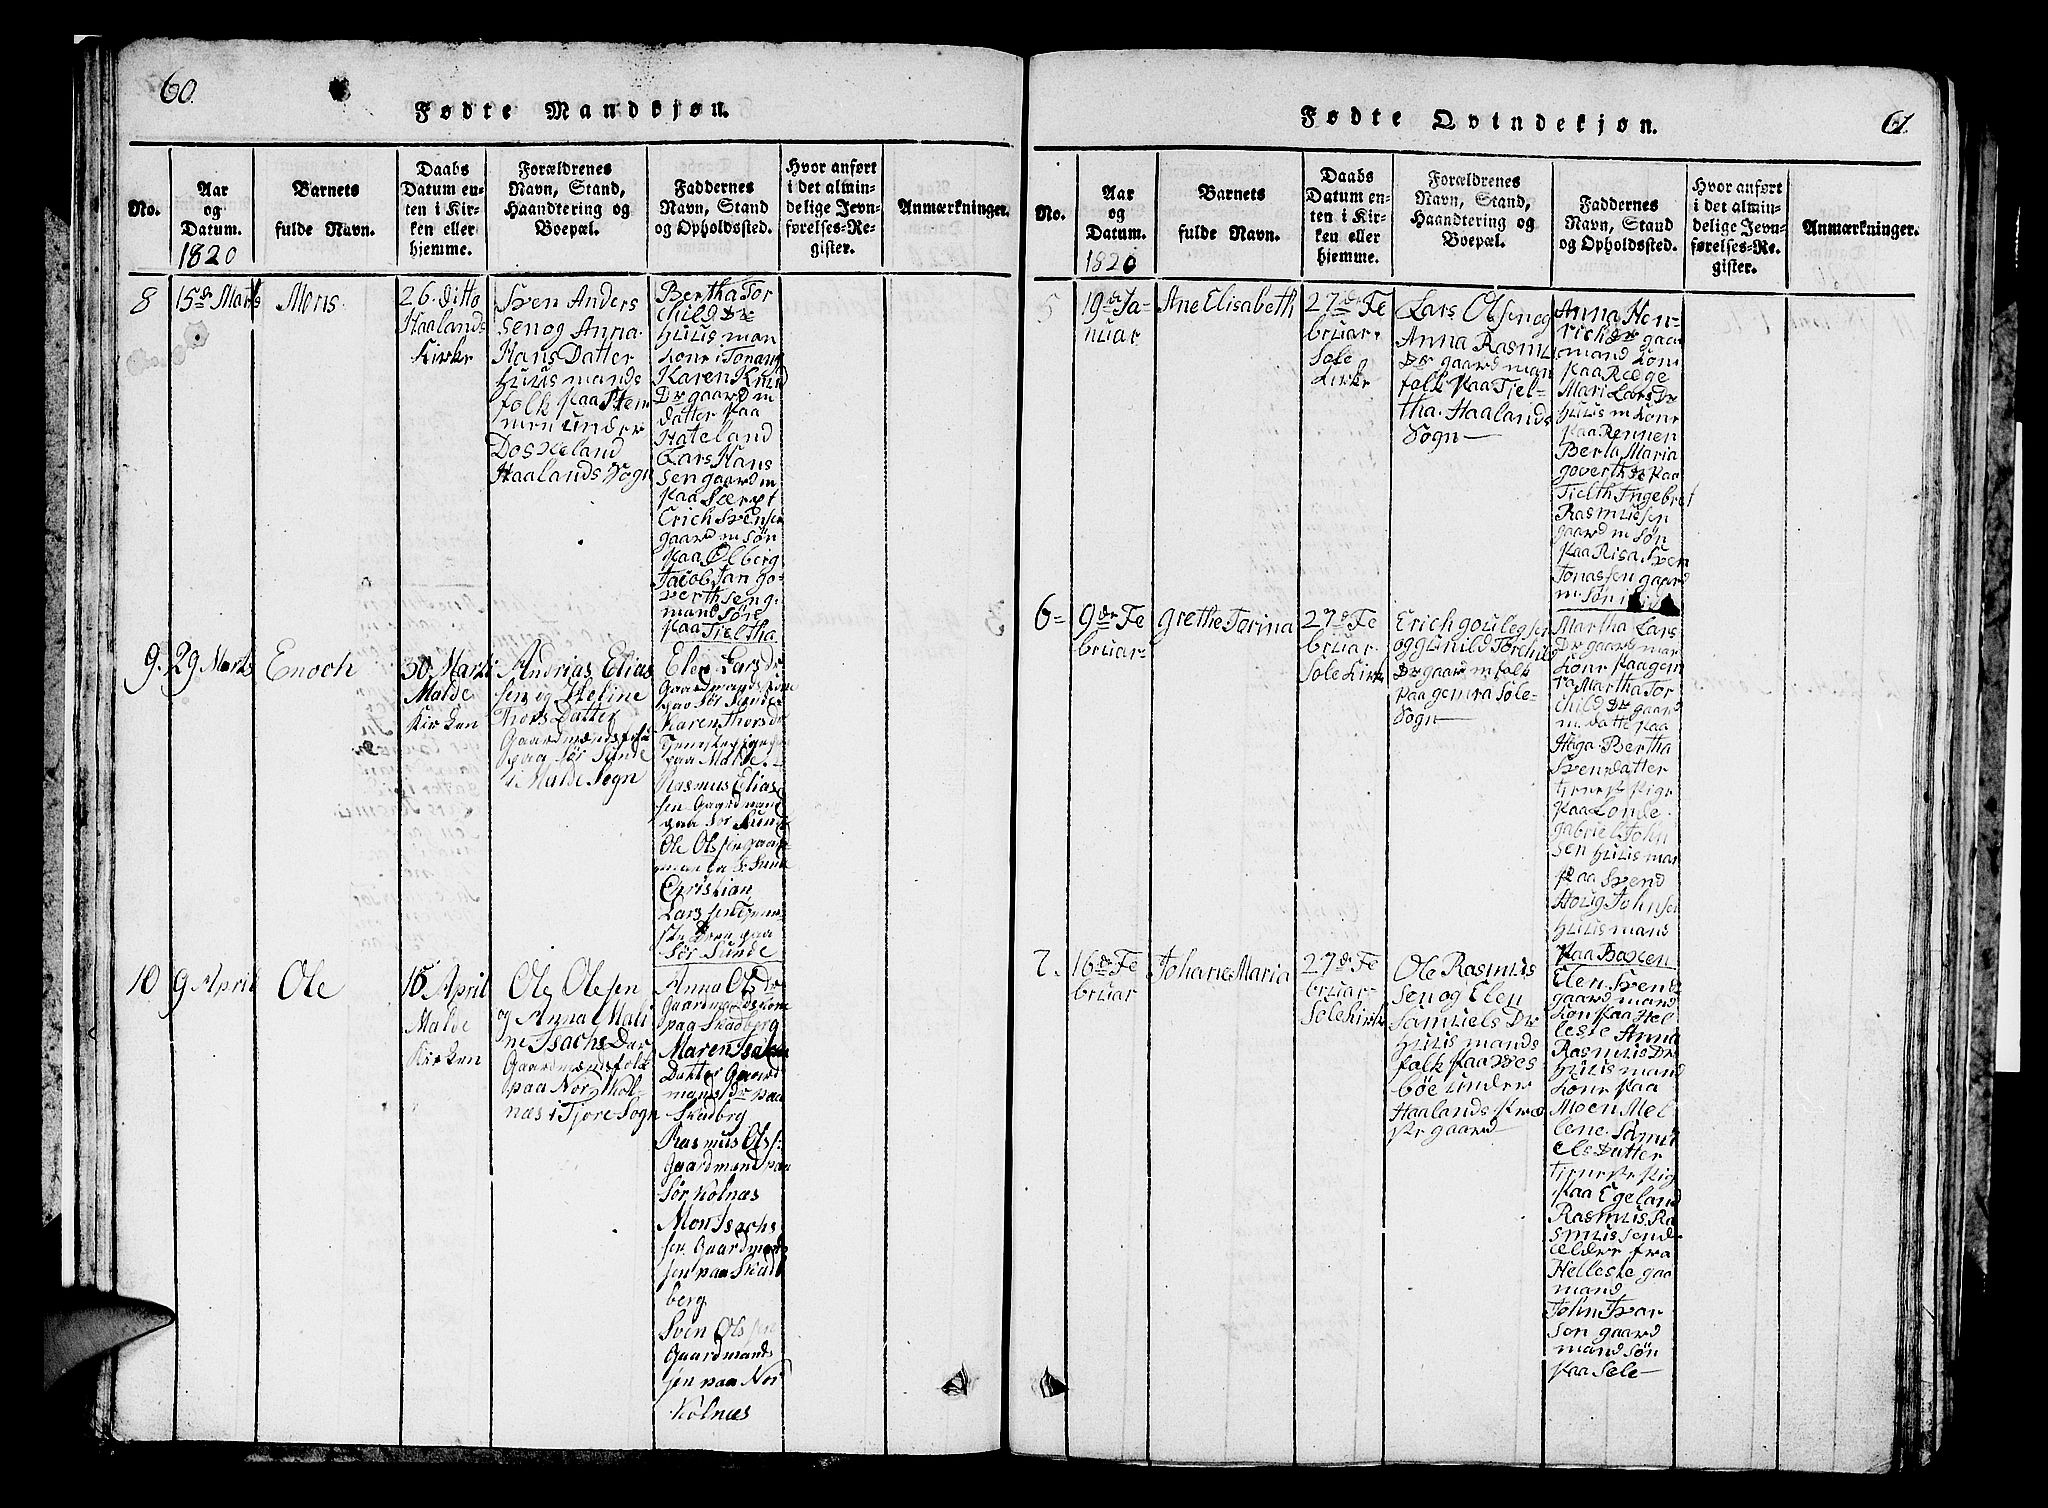 60.
Fødte Mandkjøn.
No.
Aar
og
Datum.
1820
Barnets
fulde Navn.
Daabs
Datum en-
ten i Kir-
ken eller
hjemme.
Forældrenes
Navn, Stand,
Haandtering og
Boepæl.
Faddernes
Navn, Stand
og Opholdssted.
Hvor anført
i det almin-
delige Jevn-
førelses-Re-
gister.
Anmærkninger.
8
15de Marts
Mons.
26. ditto
Haalands
Kirke
Sven Anders
sen og Anna
Hans Datter
Huusmands
folk paa Stem
men under
Dosxeland
Haalands Sogn
Bertha Tor
child Dr
Huusman
kone i Tonang
Karen Knud
Dr gaard m
datter paa
Hateland
Lars Hans
sen gaard m
paa Særxt
Erich Svensen
gaard m Søn
paa Ølberg
Jacob Jan go-
verthsen g.
mand søn
paa Tieltha
9.
29 Marts
Enoch
30 Marts
Malde
Kirken
Andrias Elias
sen og Steline
Thors Datter
Gaardmændsfolk
paa Sør Sunde
i Malde Sogn
Elen Larsdr
Gaardmandskone
paa Sør Sunde
Karen Thorsdr
Tjenestepige
paa Malde.
Rasmus Elias
sen Gaardmand
paa Sør Sunde
Ole Olssen gaard
man paa S. Sunde
Christian
Larssen Tjene
ste Dren paa
Sør Sunde
10
9 April
Ole
16 April
Malde
Kirken
Ole Olesen
og Anna Mali
ne Isachs Dar
Gaardmændsfolk
paa Nor Kol-
næs i Tjore Sogn
Anna Olsdr
Gaardmandskone
paa Skadberg
Maren Isaksen
Datter Gaard
mands Dr paa
Skadbrg
Rasmus Olss.
Gaardmand paa
Sør Kolnæs
Mon Isachs
sen Gaardmands
sen paa Skad
berg
Sven Olssen
Gaardmands
sen paa Nor
Kolnæs
61.
Fødte Qvindekjøn.
No.
Aar
og
Datum.
1820
Barnets
fulde Navn.
Daabs
Datum en-
ten i Kir-
ken eller
hjemme.
Forældrenes
Navn, Stand,
Haandtering og
Boepæl.
Faddernes
Navn, Stand
og Opholdssted.
Hvor anført
i det almin-
delige Jevn-
førelses-Re-
gister.
Anmærkninger.
5
19de Ja-
nuar
Ane Elisabeth
27de Fe
bruar.
Sole
Kirke
Lars Olsen og
Anna Rasmu
Dr gaard man
folk paa Tiel-
tha. Haalands
Sogn
Anna Hen-
rich Dr gaar
mand kone
paa Ræge
Mari Lars Dr
Huus m kone
paa Rennen
Berta Maria
goverth Dr paa
Tielth Ingebret
Rasmussen
gaard m Søn
paa Risa. Sven
Jonassen gaard
m. Søn i
6
9de Fe
bruar
Grethe Torina
27de Fe
bruar
Sole Kirke
Erich gouleg sen
og gunild Torchild
Dr gaard m folk
paa gemra Sole-
Sogn
Martha Lars
Dr gaard man
kone paa gem
ra Martha Tor
child Dr gaard
m. datte paa
Haga. Bertha
Svendatter
tieneste Pige
paa Londe.
gabriel John
sen Huusman
paa Svend
Houg Johnsen
Huusmans
paa Boxen
7.
16de Fe
bruar
Johane Maria
27de Fe
bruar
Sole Kirke
Ole Rasmus
sen og Elen
Samuels Dr
Huusmands
folk paa Xes
böe under
Haalands Præ
ste gaard
Elen Svend
gaard mand
kon paa Hel
leste Anna
Rasmus Dr
Huusmand
kone paa
Moen Mal
lene. Samu
els Datter
tieneste Pig
paa Egeland
Rasmus Ra
smussen d
ælder fra
Helleste gaa
mand
John Ivar
Sen gaard
mand søn
paa Sole